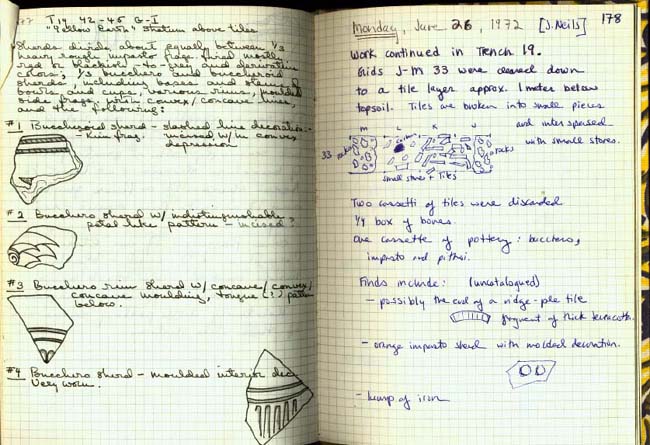 77
T 19 42-45 G-I
"Yellow Earth" stratum above tiles
Sherds divide about equally between 1/3
heavy rough impasto frags. fired mostly
red or blackish-to-grey and derivative
colors; 1/3 bucchero and buccheroid
sherds, including bases and stems of
bowls and cups, various rims, moulded
side frags. with convex/concave lines,
and the following:
#1 Buccheroid sherd - slashed line decoration -
- rim frag. incised w/in convex
depression
#2 Bucchero sherd w/ indistinguishable
petal like pattern - incised?
#3 Bucchero rim sherd w/ concave/convex/
concave moulding, tongue (?) pattern
below.
#4 Bucchero sherd - moulded interior dec
Very worn.
Monday, June 26, 1972 [J. Neils] 178
Work continued in Trench 19.
Grids J-M 33 were cleared down
to a tile layer approx. 1 meter below
topsoil. Tiles are broken into small pieces
and interspersed
with small stones.
M L K J
33 rocks rocks
small stones + tiles
Two cassetti of tiles were discarded
1/4 box of bones.
One cassette of pottery: bucchero,
impasto and pithoi.
Finds include: (uncatalogued)
- possibly the end of a ridge-pole tile
fragment of thick terracotta.
- orange impasto sherd with molded decoration.
- lump of iron